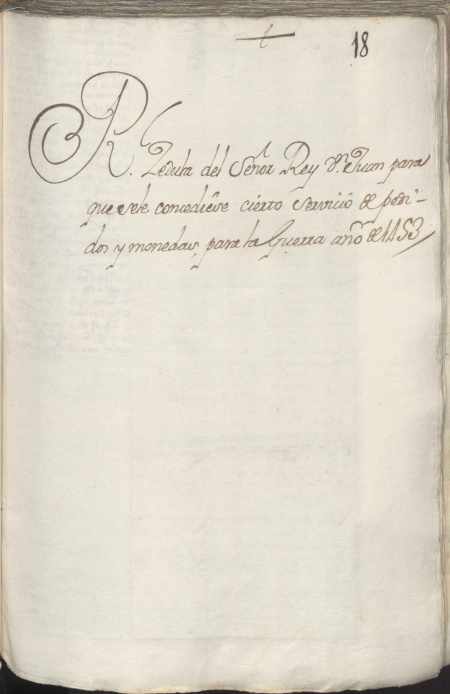 18
R. Zedula del Señor Rey Dn. Juan para
que se le concediese cierto servicio de pedi-
dos y monedas, para la Guerra año de 1453